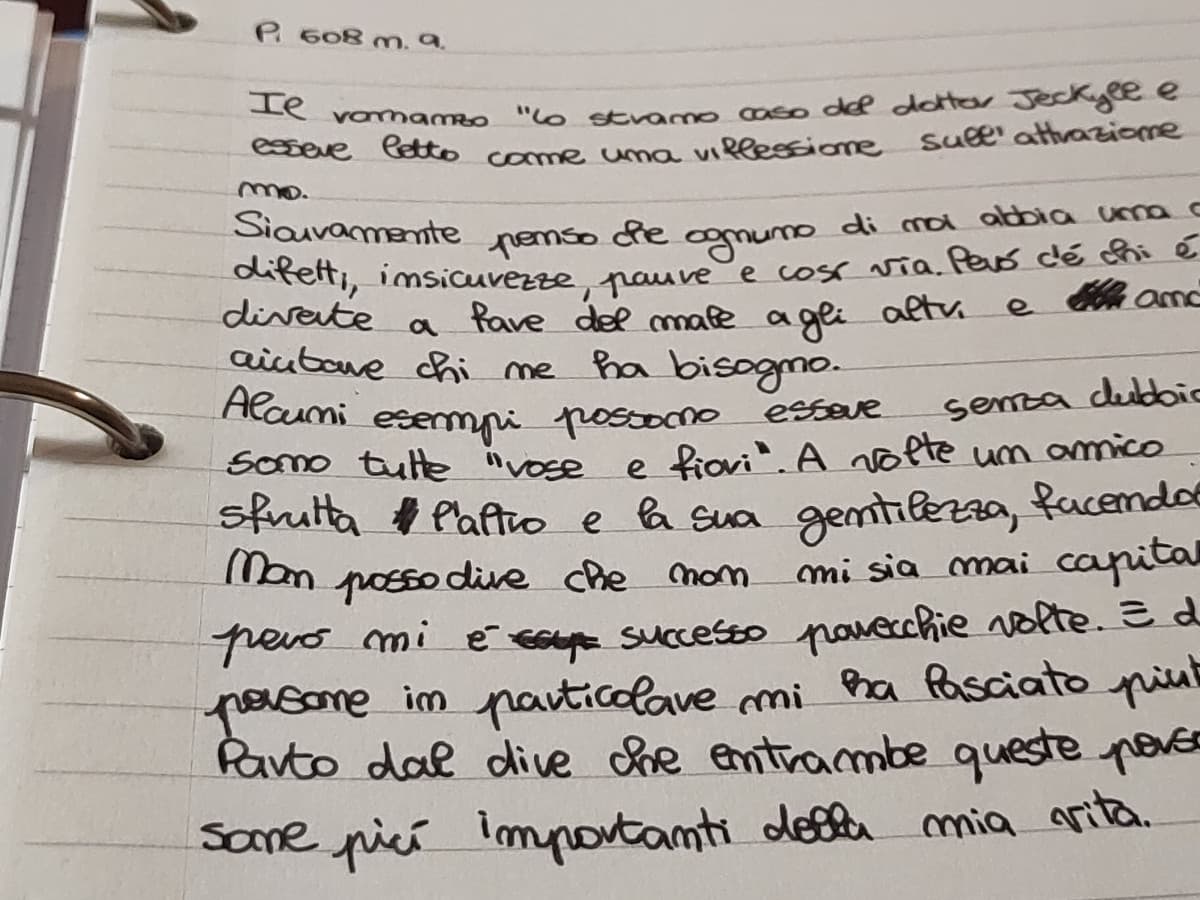 P. 608 n. 9.
Il romanzo "Lo strano caso del dottor Jeckyll e
essere letto come una riflessione sull'attrazione
no.
Sicuramente penso che ognuno di noi abbia una
difetti, insicurezze, paure e così via. Però c'é chi é
diverte a fare del male agli altri e
aiutare chi ne ha bisogno.
Alcuni esempi possono essere senza dubbio
sono tutte "rose e fiori". A volte un amico
sfrutta l'altro e la sua gentilezza, facendo
Non posso dire che non mi sia mai capita
però mi é successo parecchie volte. E d
persone in particolare mi ha lasciato piut
Parto dal dire che entrambe queste perso
sone più importanti della mia vita.